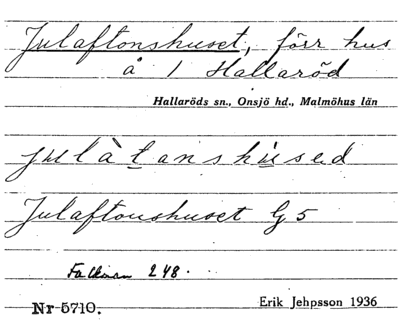 Julaftonshuset, förr hus
å 1 Hallaröd
Hallaröds sn., Onsjö hd., Malmöhus län
julàtanshùsed
Julaftonshuset G5
Falkman 248.
Nr 5710.
Erik Jehpsson 1936